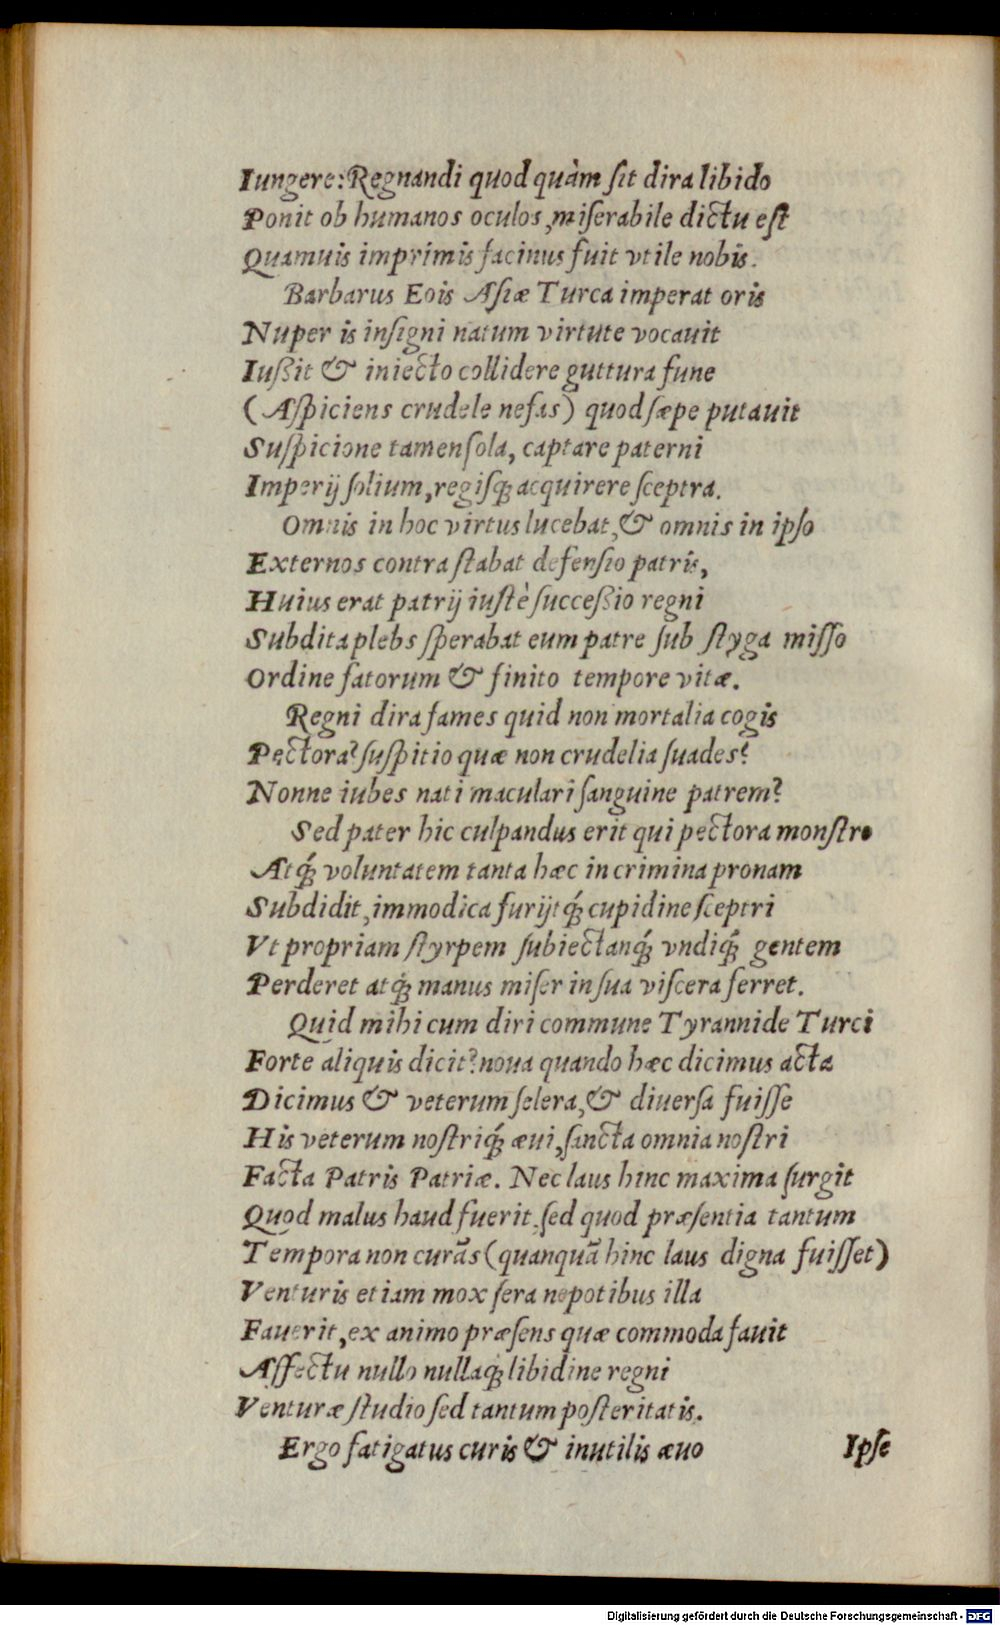 Iungere: Regnandi quod quàm ſit dira libido
Ponit ob humanos oculos, miſerabile dictu eſt
Quamuis imprimis facinus fuit vtile nobis.
Barbarus Eois Aſiæ Turca imperat oris
Nuper is inſigni natum virtute vocauit
Iußit & iniecto collidere guttura fune
(Aſpiciens crudele nefas) quod ſæpe putauit
Suſpicione tamen ſola, captare paterni
Imperij ſolium, regiſq́; acquirere ſceptra.
Omnis in hoc virtus lucebat, & omnis in ipſo
Externos contra ſtabat defenſio patris,
Huius erat patrij iuſtè ſucceßio regni
Subdita plebs ſperabat eum patre ſub ſtyga miſſo
Ordine fatorum & finito tempore vitæ.
Regni dira fames quid non mortalia cogis
Pectora? ſuſpitio quæ non crudelia ſuades?
Nonne iubes nati maculari ſanguine patrem?
Sed pater hic culpandus erit qui pectora monſtro
Atq́; voluntatem tanta hæc in crimina pronam
Subdidit, immodica furijtq́; cupidine ſceptri
Vt propriam ſtyrpem ſubiectanq́; vndiq́; gentem
Perderet atq́; manus miſer in ſua viſcera ferret.
Quid mihi cum diri commune Tyrannide Turci
Forte aliquis dicit? noua quando hæc dicimus acta
Dicimus & veterum ſelera, & diuerſa fuiſſe
His veterum noſtriq́; æui, ſancta omnia noſtri
Facta Patris Patriæ. Nec laus hinc maxima ſurgit
Quod malus haud fuerit, ſed quod præſentia tantum
Tempora non curãs (quanquã hinc laus digna fuiſſet)
Venturis etiam mox ſera nepotibus illa
Fauerit, ex animo præſens quæ commoda fauit
Affectu nullo nullaq́; libidine regni
Venturæ ſtudio ſed tantum poſteritatis.
Ergo fatigatus curis & inutilis æuo
Ipſe
Digitalisierung gefördert durch die Deutsche Forschungsgemeinschaft - DFG